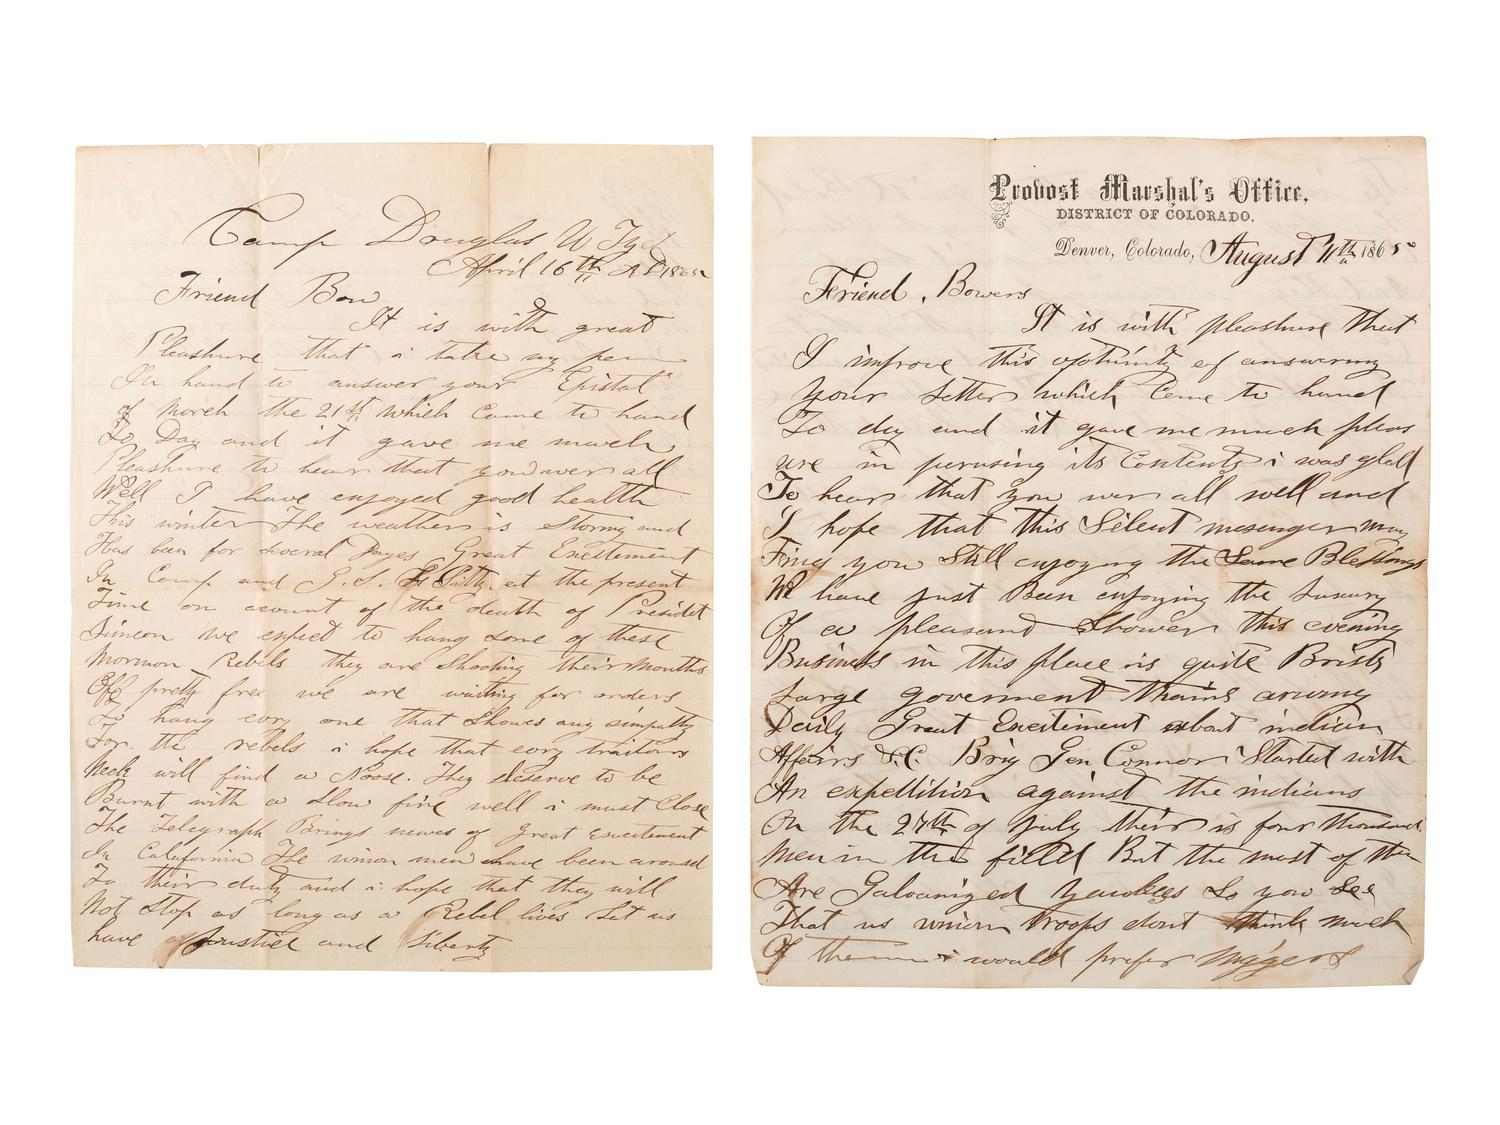 Camp Douglas U Ty
April 16th AD 1865
Friend Bow
It is with great
Pleashure that i take my pen
In hand to answer your Epistal
of march the 21st which Came to hand
To Day and it gave me much
Pleashure to hear that you wer all
Well I have enjoyed good health
This winter The weather is Stormy and
Has been for several Dayes Great Excitement
In Camp and G. S. L. Citty at the present
Time on acount of the death of Presidet
Lincon we expect to hang some of these
Mormon Rebels they are Shooting their mouths
Off pretty free we are waiting for orders
To hang evry one that Showes any simpatty
For the rebels i hope that evry traitors
Neck will find a Noose. They deserve to be
Burnt with a slow fire well i must Close
The Telegraph Brings newes of Great Excitement
In Calafornia The union men have been aroused
To their duty and i hope that they will
Not Stop as long as a Rebel lives Let us
have Joustice and Liberty
Provost Marshal's Office,
DISTRICT OF COLORADO.
Denver, Colorado, August 4th 1865
Friend, Bowers
It is with pleashure that
I improve this opotunity of answering
Your Letter which Came to hand
To day and it gave me much pleas
ure in perusing its Contents i was glad
To hear that you wer all well and
I hope that this Silent mesenger may
Find you Still enjoying the Same Blessings
We have just Been enjoying the Luxury
Of a pleasand Shower this evening
Business in this place is quite Brisk
Large goverment trains ariving
Daily Great Excitement about indian
Affairs &.C. Brig Gen Connor Started with
An expedition against the indians
On the 27th of July their is four thousand
Men in the field But the most of them
Are Galvanized Yankees So you See
That us union troops dont think much
Of them i would prefer Niggers